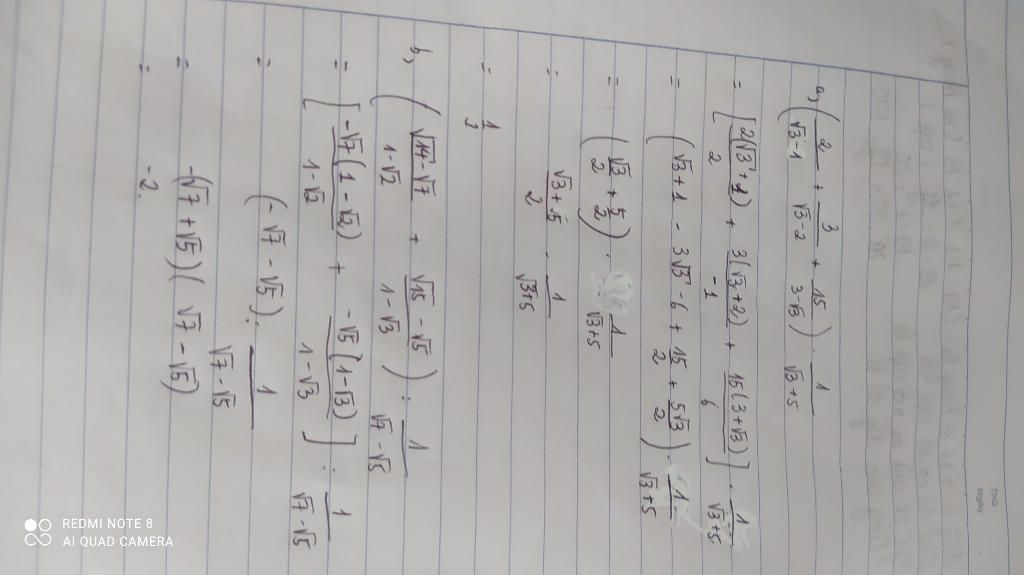 a, (2/(√3-1) + 3/(√3-2) + 15/(3-√3)) · 1/(√3+5)
= [2(√3+1)/2 + 3(√3+2)/-1 + 15(3+√3)/6] · 1/(√3+5)
= (√3+1 - 3√3 - 6 + 15/2 + 5√3/2) · 1/(√3+5)
= (√3/2 + 5/2) · 1/(√3+5)
= (√3+5)/2 · 1/(√3+5)
= 1/2
b, ((√14-√7)/(1-√2) + (√15-√5)/(1-√3)) : 1/(√7-√5)
= [-√7(1-√2)/(1-√2) + -√5(1-√3)/(1-√3)] : 1/(√7-√5)
= (-√7-√5) : 1/(√7-√5)
= -(√7+√5)(√7-√5)
= -2.
Thứ
Ngày
REDMI NOTE 8
AI QUAD CAMERA